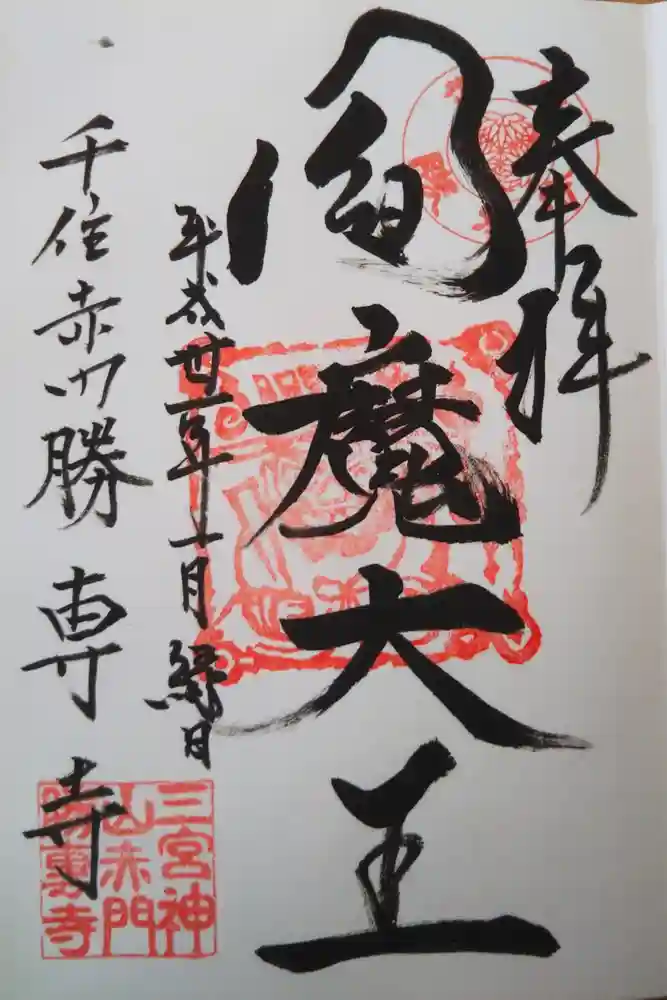 奉拝
閻魔大王
平成卅一年一月縁日
千住赤門勝専寺
三宮神
山赤門
勝專寺